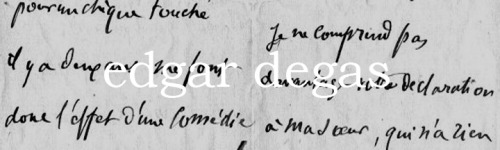 pour un chèque touché
il y a deux ans me font
donc l'effet d'une Comédie
Je ne comprend pas
declaration
à ma sœur, qui n'a rien
edgar degas